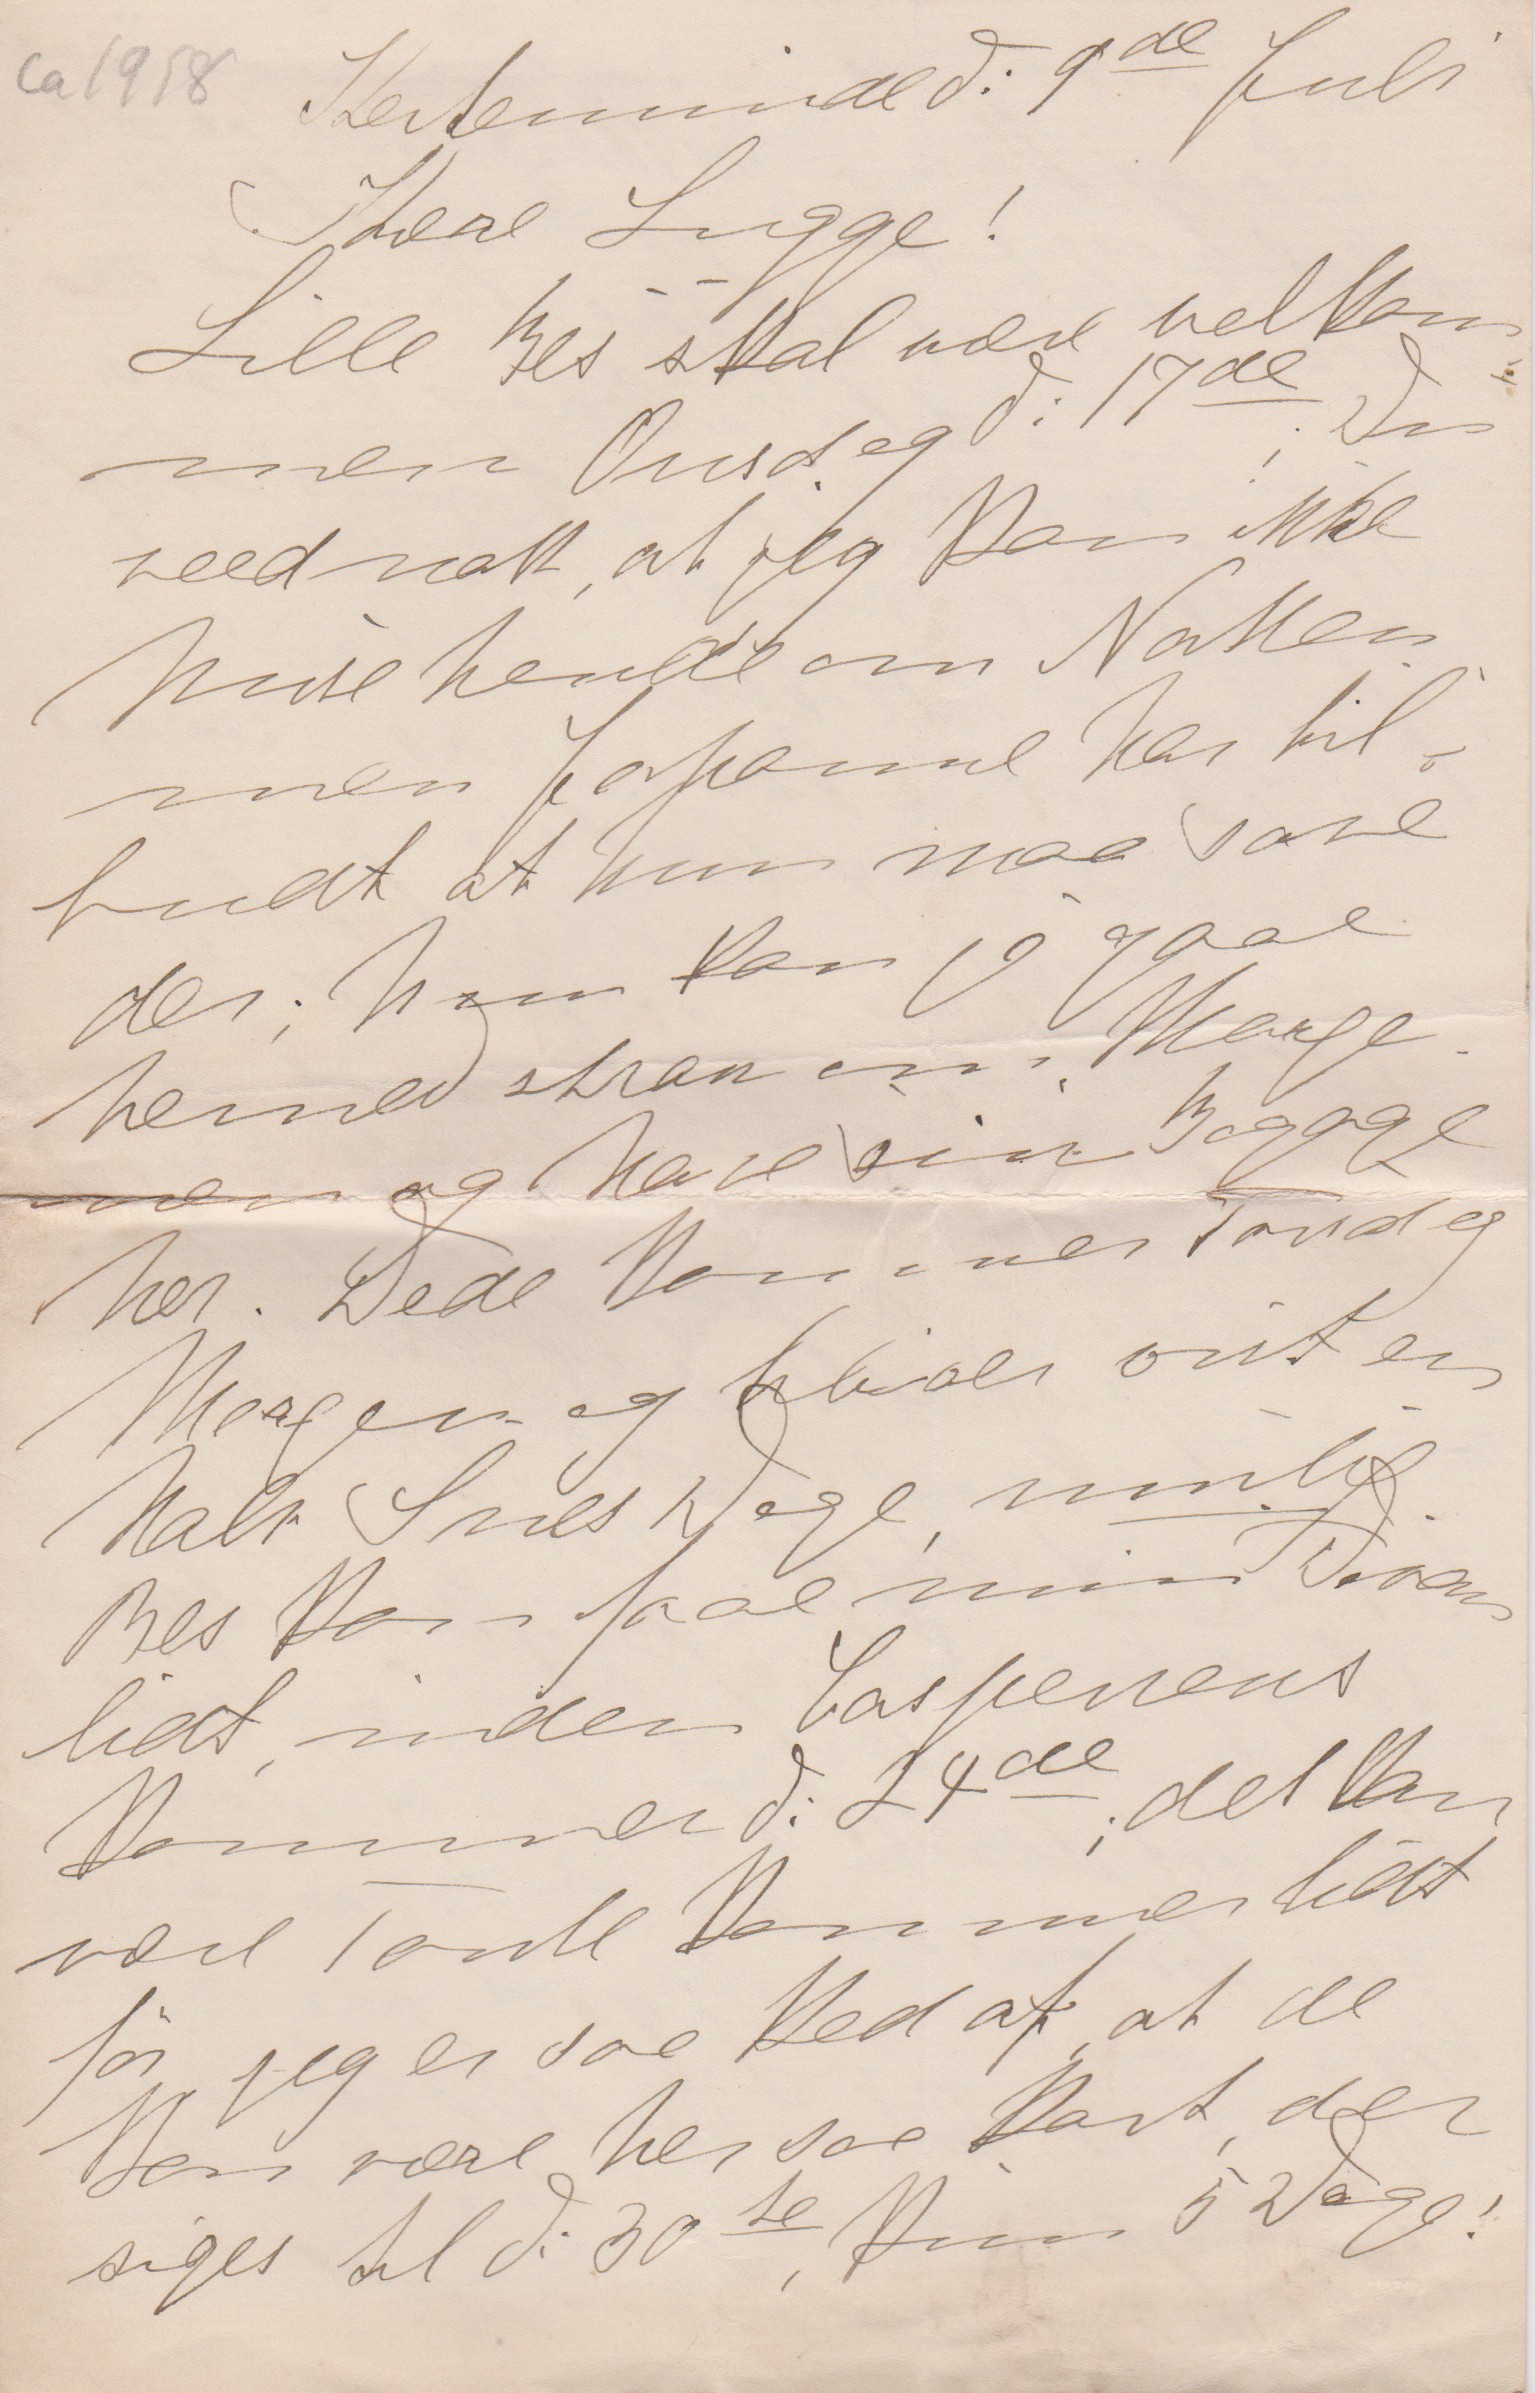 ca 1918
Kerteminde d: 9de Juli
Kære Lugge!
Lille Bes skal være velkom
men Onsdag d: 17de; Du
veed nok, at jeg kan ikke
huse hende om Natten
men Johanne har til-
budt at hun maa sove
der; hun kan jo gaae
herned strax om Morge-
nen og have sin Bagage
her. Dede kommer Torsdag
Morgen og bliver vist en
halv Snes Dage, mulig
Bes kan faae min Divan
lidt, inden Caspersens
kommer d: 24de; det kan
være Tante kommer lidt
før jeg er saa ked af, at de
kan være her saa kort, der
siges til d: 30te, kun 5 Dage!